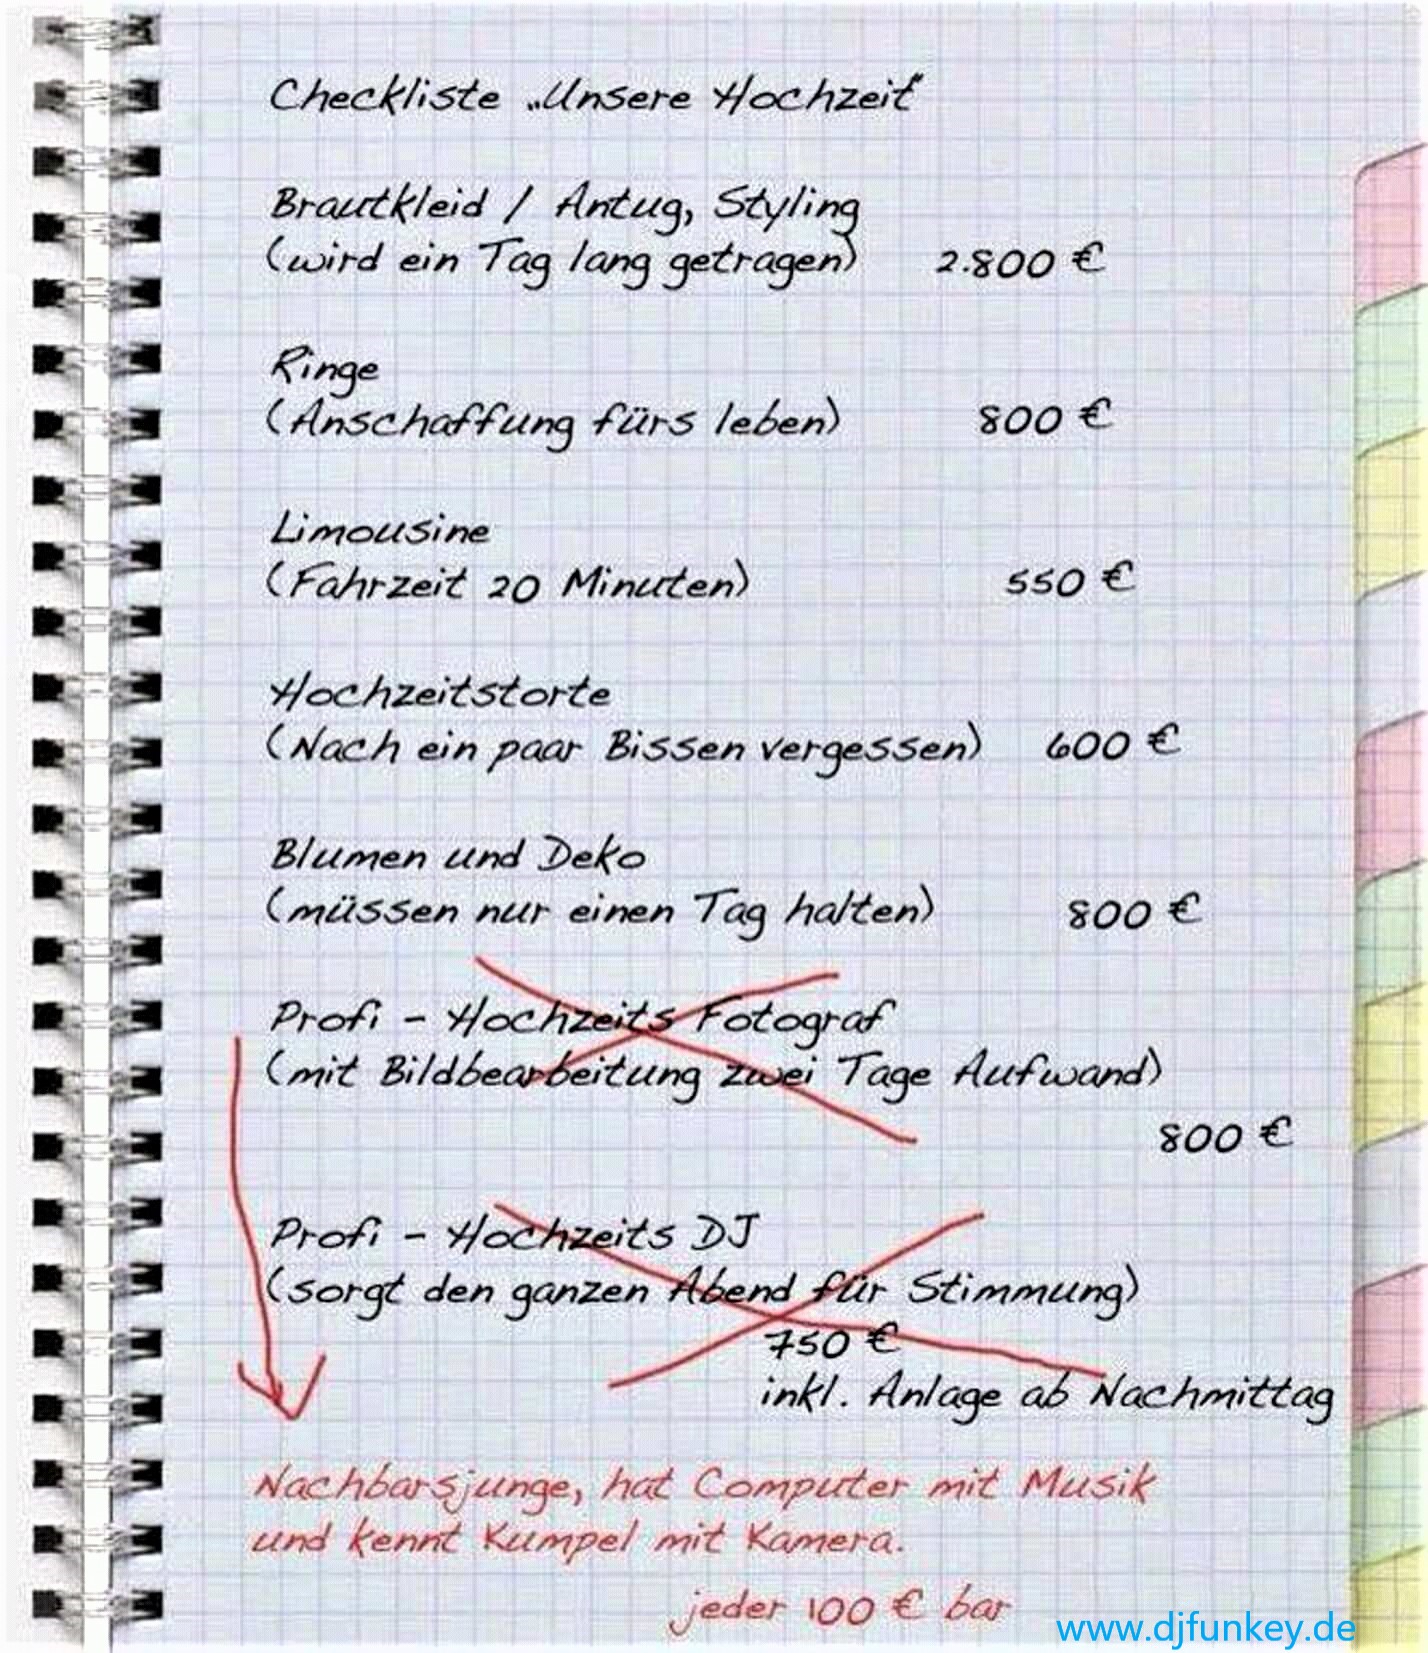 Checkliste „Unsere Hochzeit"
Brautkleid / Antug, Styling
(wird ein Tag lang getragen) 2.800 €
Ringe
(Anschaffung fürs leben) 800 €
Limousine
(Fahrzeit 20 Minuten) 550 €
Hochzeitstorte
(Nach ein paar Bissen vergessen) 600 €
Blumen und Deko
(müssen nur einen Tag halten) 800 €
Profi - Hochzeits Fotograf
(mit Bildbearbeitung zwei Tage Aufwand)
800 €
Profi - Hochzeits DJ
(sorgt den ganzen Abend für Stimmung)
750 €
inkl. Anlage ab Nachmittag
Nachbarsjunge, hat Computer mit Musik
und kennt Kumpel mit Kamera.
jeder 100 € bar
www.djfunkey.de